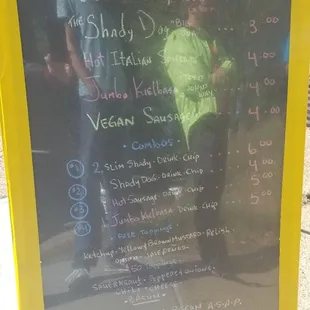 THE
Shady Dog "BIG 3.00
Hot Italian Sausage 4.00
Jumbo Kielbasa 4.00
VEGAN SAUSAGE 4.00
-COMBOS-
#1 2 SLIM Shady - DRINK - CHIP 6.00
#2 Shady Dog - DRINK - CHIP 4.00
#3 Hot Sausage - DRINK - CHIP 5.00
Jumbo Kielbasa - DRINK - CHIP 5.00
FREE TOPPINGS
KETCHUP - Yellow/Brown MUSTARD - RELISH
ONION
SAUERKRAUT - PEPPERS & ONIONS
BACON